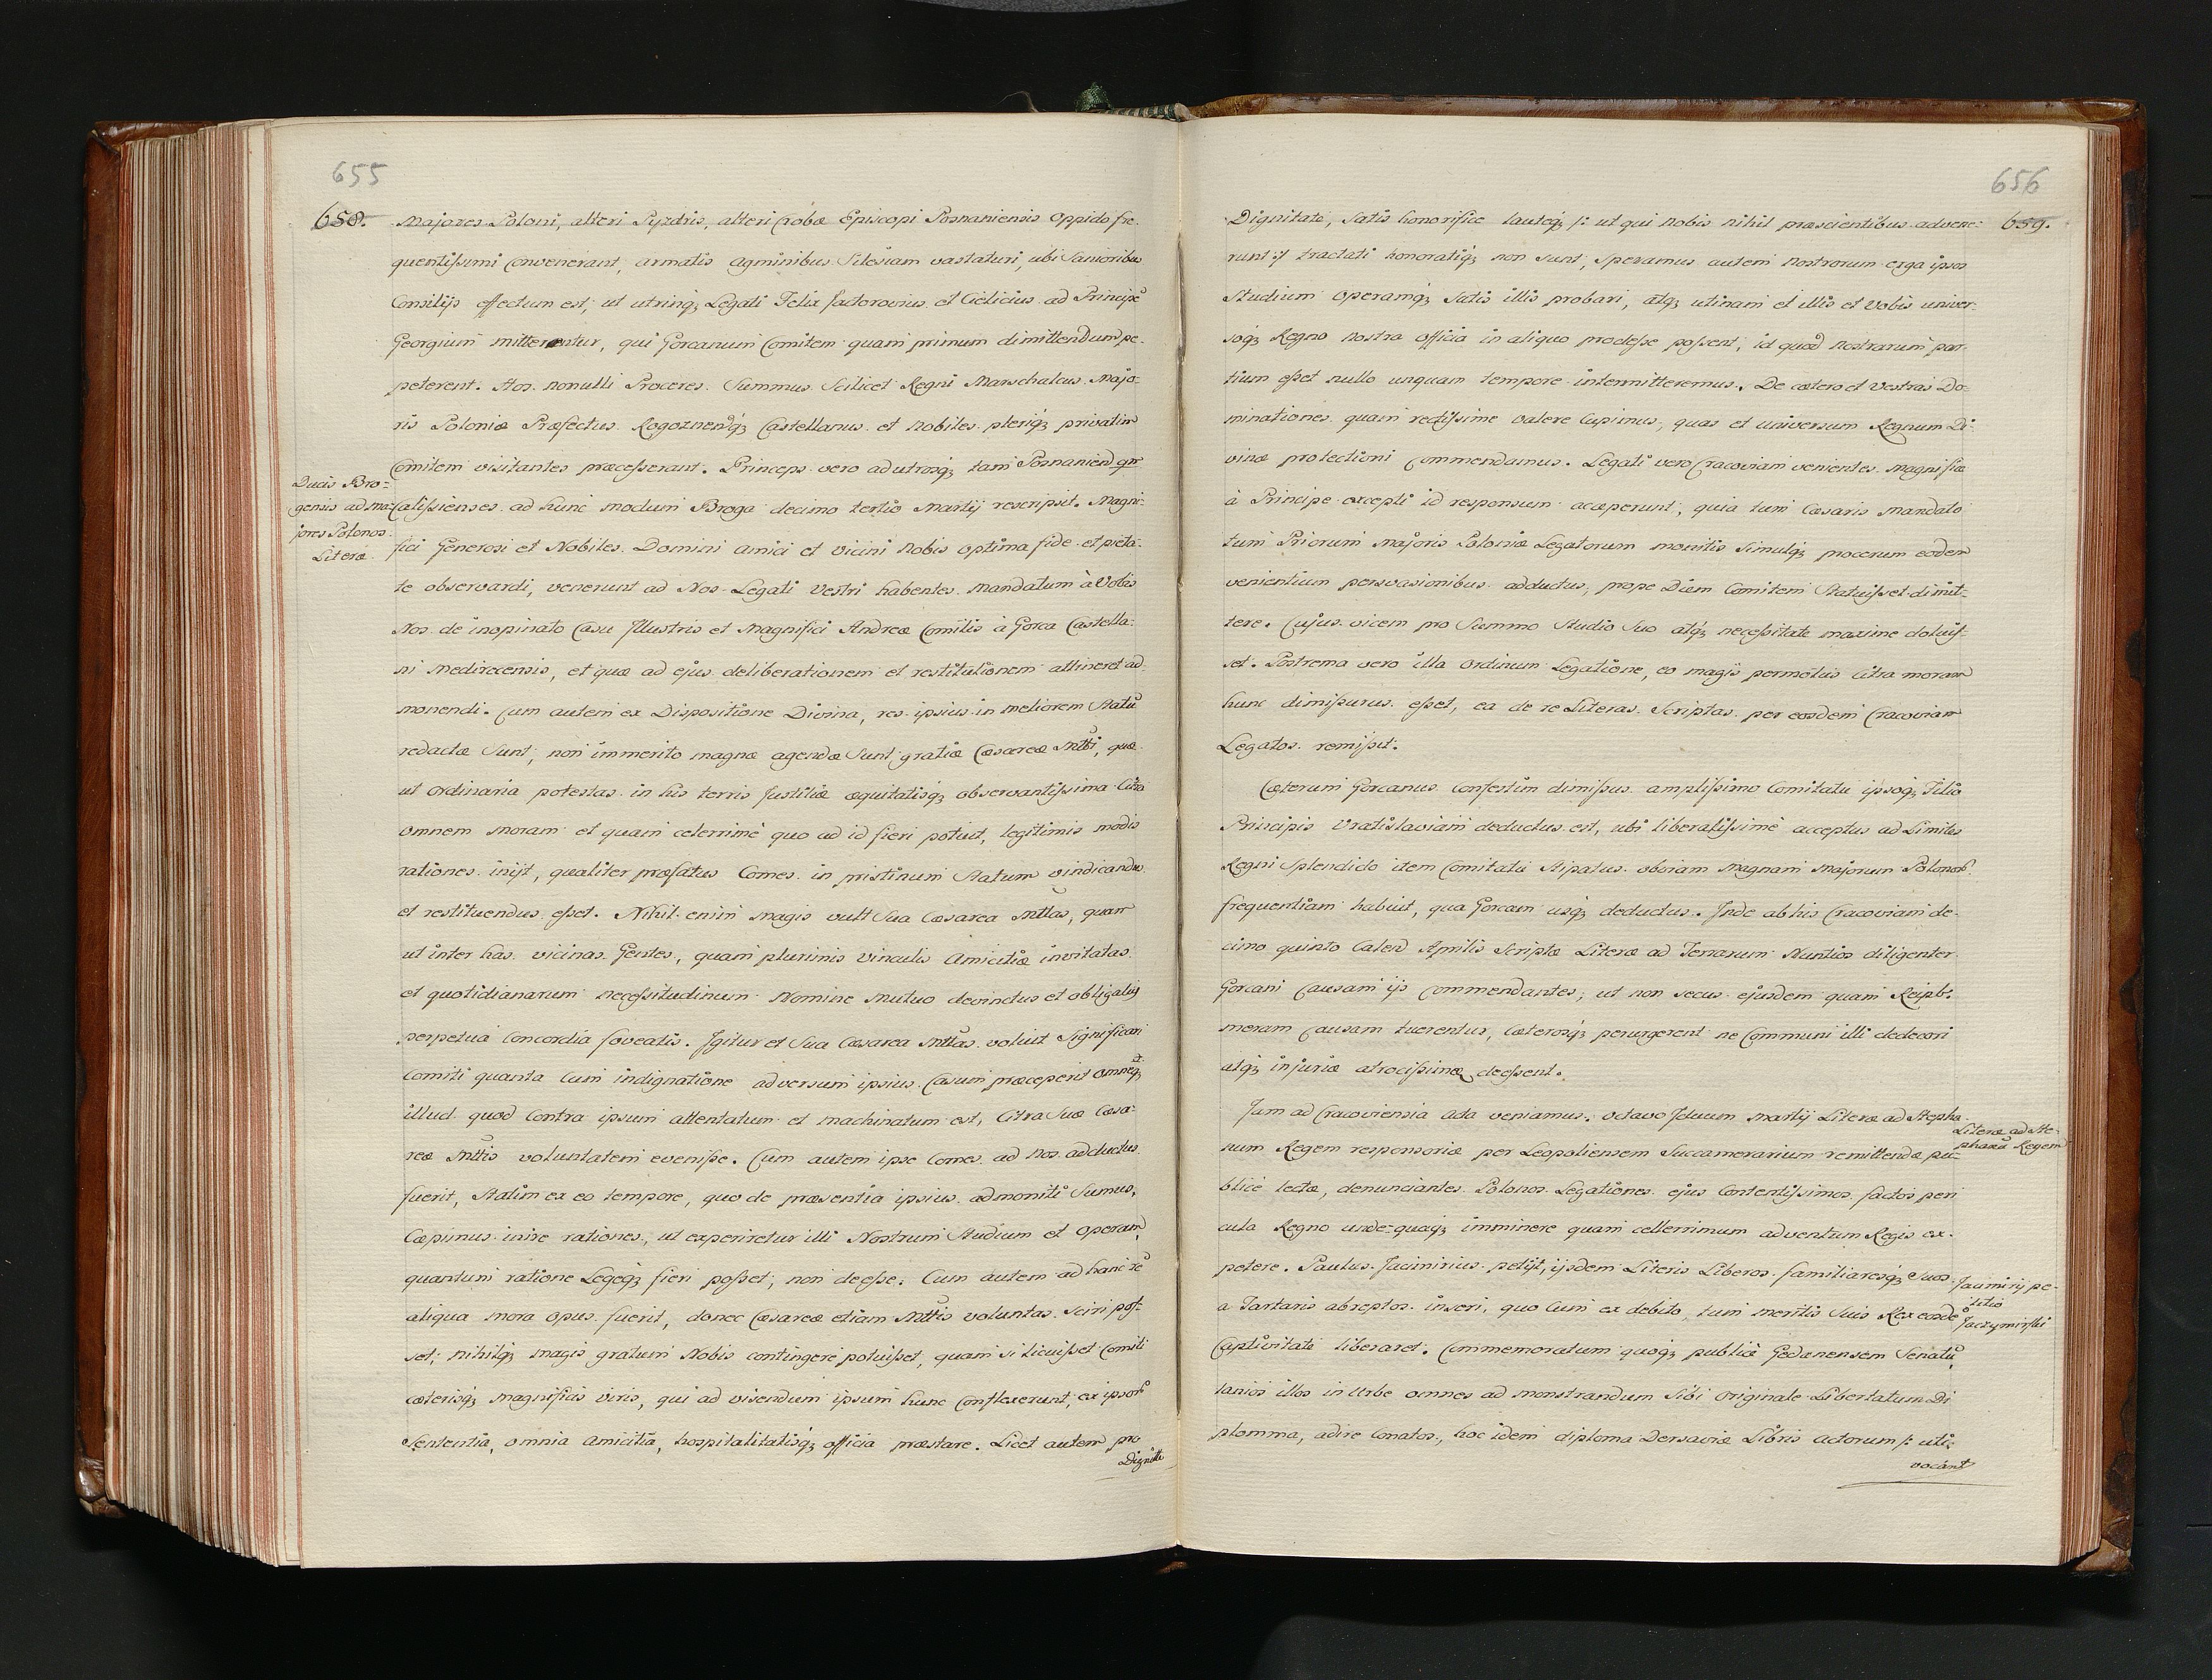 655
658.
Majores Poloni, alteri Pyzdris, alteri Crobæ Episcopi Posnaniensis oppido fre-
quentissimi convenerant, armatis agminibus Silesiam vastaturi, ubi Sanioribus
Consilijs effectum est, ut utrinq; Legati Felix Jactorovius et Cielicius ad Principē
Georgium mitterentur, qui Gorcanum Comitem quam primum dimittendum pe-
peterent. Hos nonulli Proceres Summus Scilicet Regni Marschalcus Majo-
ris Poloniæ Præfectus Rogoznenq; Castellanus et Nobiles pleriq; privatim
Comitem visitantes præcesserant. Princeps vero ad utrosq; tam Posnanien qm
Ducis Bre-
gensis ad Ma-
jores Polonos
Literæ
Calissienses ad hunc modum Brega decimo tertio Martij rescripsit. Magni-
fici Generosi et Nobiles Domini amici et vicini Nobis optima fide et pieta-
te observandi, venerunt ad Nos Legati Vestri habentes mandatum à Vobis
Nos de inopinato Casu Illustris et Magnifici Andreæ Comitis à Gorca Castella-
ni Medirecensis, et quæ ad ejus deliberationem et restitutionem attineret ad-
monendi. Cum autem ex Dispositione Divina, res ipsius in meliorem Statū
redactæ Sunt, non immerito magnæ agendæ Sunt gratiæ Cæsareæ Mtti, quæ
ut ordinaria potestas in his terris Justitiæ æquitatisq; observantissima Citra
omnem moram et quam celerrimè quo ad id fieri potuit, legitimis modis
rationes inijt, qualiter præfatus Comes in pristinum Statum vindicandus
et restituendus esset. Nihil enim magis vult Sua Cæsarea Mttas, quam
ut inter has vicinas Gentes, quam plurimis vinculis Amicitiæ invitatas
et quotidianarum necessitudinum Nomine mutuo devinctus et obligatus
perpetuâ Concordiâ foveatis. Igitur et Sua Cæsarea Mttas voluit Significari
Comiti quanta Cum indignatione adversum ipsius Casum præceperit omneq; et
illud quod Contra ipsum attentatum et machinatum est, Citra Suæ Cæsa-
reæ Mttis voluntatem evenisse. Cum autem ipse Comes ad Nos adductus
fuerit, Statim ex eo tempore, quo de præsentia ipsius admoniti Sumus,
Cæpimus inire rationes, ut experiretur illi Nostrum Studium et operam,
quantum ratione Legeq; fieri posset, non deesse. Cum autem ad hanc rē
aliqua mora opus fuerit, donec Cæsareæ etiam Mttis voluntas sciri pos-
set, nihilq; magis gratum Nobis contingere potuisset, quam si licuisset Comiti
cæterisq; magnificis viris, qui ad visendum ipsum hunc Conflexerunt, ex ipsorū
Sententia, omnia Amicitia, hospitalitatisq; officia præstare. Licet autem pro
Dignitte
656
659.
Dignitate, Satis honorifice lauteq; /: ut qui Nobis nihil præscientibus advene-
runt :/ tractati honoratiq; non Sunt, Speramus autem Nostrorum erga ipsos
Studium operamq; Satis illis probari, atq; utinam et illis et Vobis univer-
soq; Regno Nostra officia in aliquo prodesse possent, id quod Nostrarum par-
tium esset nullo unquam tempore intermitteremus. De cætero et Vestras Do-
minationes quam rectissime valere Cupimus, quas et universum Regnum Di-
vinæ protectioni Commendamus. Legati vero Cracoviam venientes Magnificæ
à Principe excepti id responsum acceperunt, quia tum Cæsaris mandato
tum Priorum Majoris Poloniæ Legatorum monitis Simulq; procerum eodem
venientium persvasionibus adductus, prope Diem Comitem Statuisset dimit-
tere. Cujus vicem pro Summo Studio Suo atq; necessitate maxime doluis-
set. Postrema vero illa ordinum Legatione, eo magis permotus Citra moram
hunc dimissurus esset, ea de re Literas Scriptas per eosdem Cracoviam
Legatos remisit.
Cæterum Gorcanus Confestim dimissus amplissimo Comitatu ipsoq; Filio
Principis Vratislaviam deductus est, ubi liberalissimè acceptus ad Limites
Regni Splendido item Comitatu Stipatus obviam Magnam Majorum Polonorū
frequentiam habuit, qua Gorcam usq; deductus. Inde ab his Cracoviam de-
cimo quinto Calend Aprilis Scriptæ Literæ ad Terrarum Nuntios diligenter
Gorcani Causam ijs Commendantes, ut non secus ejusdem quam Reipb.
meram Causam tuerentur, Cæterosq; perurgerent ne Communi illi dedecori
atq; injuriæ atrocissimæ deessent.
Jam ad Cracoviensia acta veniamus. octavo Iduum Martij Literæ ad Stepha-
Literæ ad Ste-
phanū Regem
num Regem responsoriæ per Leopoliensem Succamerarium remittendæ pu-
blicè lectæ, denunciantes Polonos Legationes ejus Contentissimos factos peri
cula Regno unde-quaq; imminere quam cellerrimum adventum Regis ex-
petere. Paulus Jacimirius petijt, ijsdem Literis Liberos familiaresq; Suos
Jacimirij pe-
titio
Jaczymirski
a Tartaris abreptos inseri, quo Cum ex debito, tum meritis Suis Rex eosdē
Captivitate liberaret. Commemoratum quoq; publicè Gedanensem Senatū,
Lanios illos in Urbe omnes ad monstrandum Sibi originale Libertatum Di
plomma, adire Conatos, hoc idem diploma Dersaviæ Libris actorum /: uti
vocant